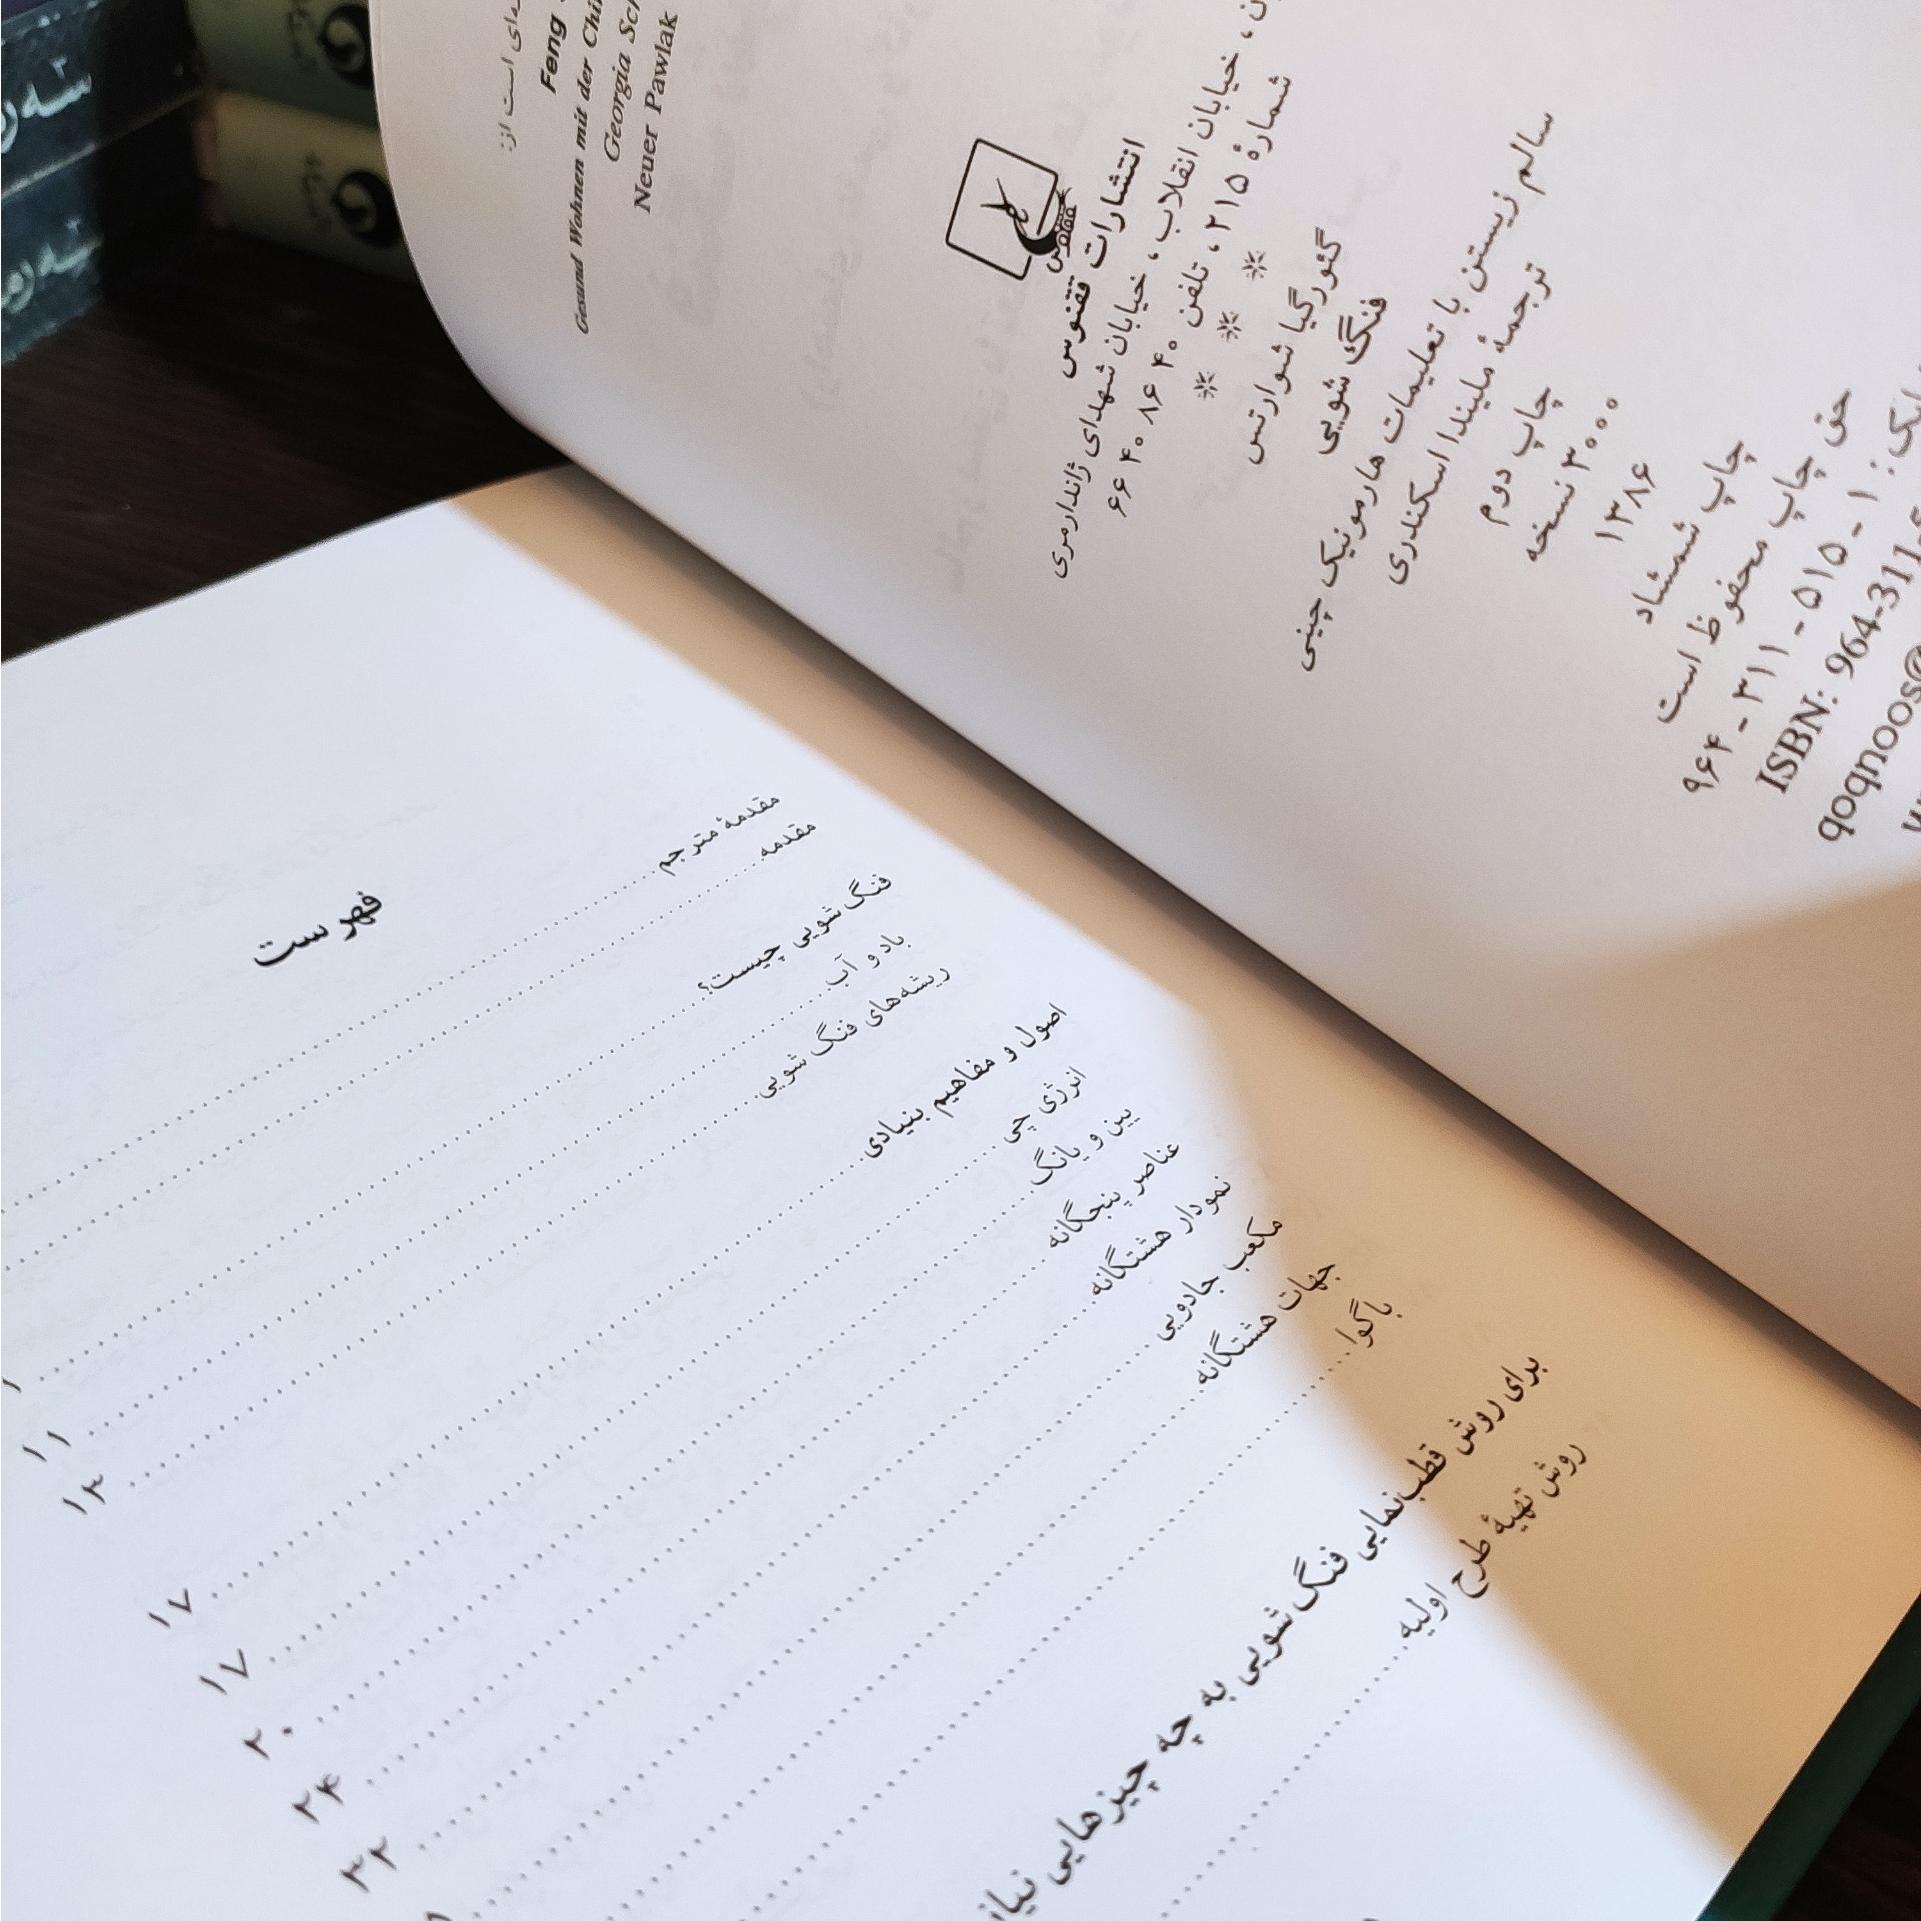 این کتاب ترجمه‌ای است از:
Feng
Gesund Wohnen mit der Chi
Georgia Sch
Neuer Pawlak
ققنوس
انتشارات ققنوس
خیابان انقلاب، خیابان شهدای ژاندارمری
شمارهٔ ۲۱۵، تلفن ۴۰ ۸۶ ۴۰ ۶۶
* * *
گئورگیا شوارتس
فنگ شویی
سالم زیستن با تعلیمات هارمونیک چینی
ترجمهٔ ملیندا اسکندری
چاپ دوم
۳۰۰۰ نسخه
۱۳۸۶
چاپ شمشاد
حق چاپ محفوظ است
شابک: ۱ - ۵۱۵ - ۳۱۱ - ۹۶۴
ISBN: 964-311-5
qoqnoos@
فهرست
مقدمهٔ مترجم
مقدمه
فنگ شویی چیست؟
باد و آب ۱۱
ریشه‌های فنگ شویی ۱۳
اصول و مفاهیم بنیادی ۱۷
انرژی چی ۱۷
یین و یانگ ۲۰
عناصر پنجگانه ۲۴
نمودار هشتگانه ۳۲
مکعب جادویی
جهات هشتگانه
باگوا
برای روش قطب‌نمایی فنگ شویی به چه چیزهایی نیاز
روش تهیهٔ طرح اولیه